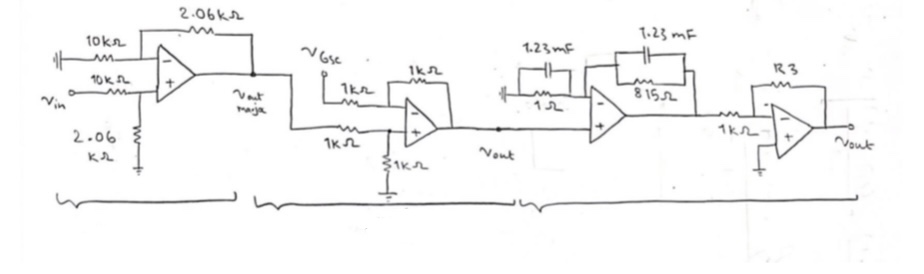 2.06kΩ
10kΩ
10kΩ
Vin
2.06
kΩ
Vout
marja
VGsc
1kΩ
1kΩ
1kΩ
1kΩ
Vout
1.23mF
1Ω
1.23mF
815Ω
1kΩ
R3
Vout
- + - + - + - +